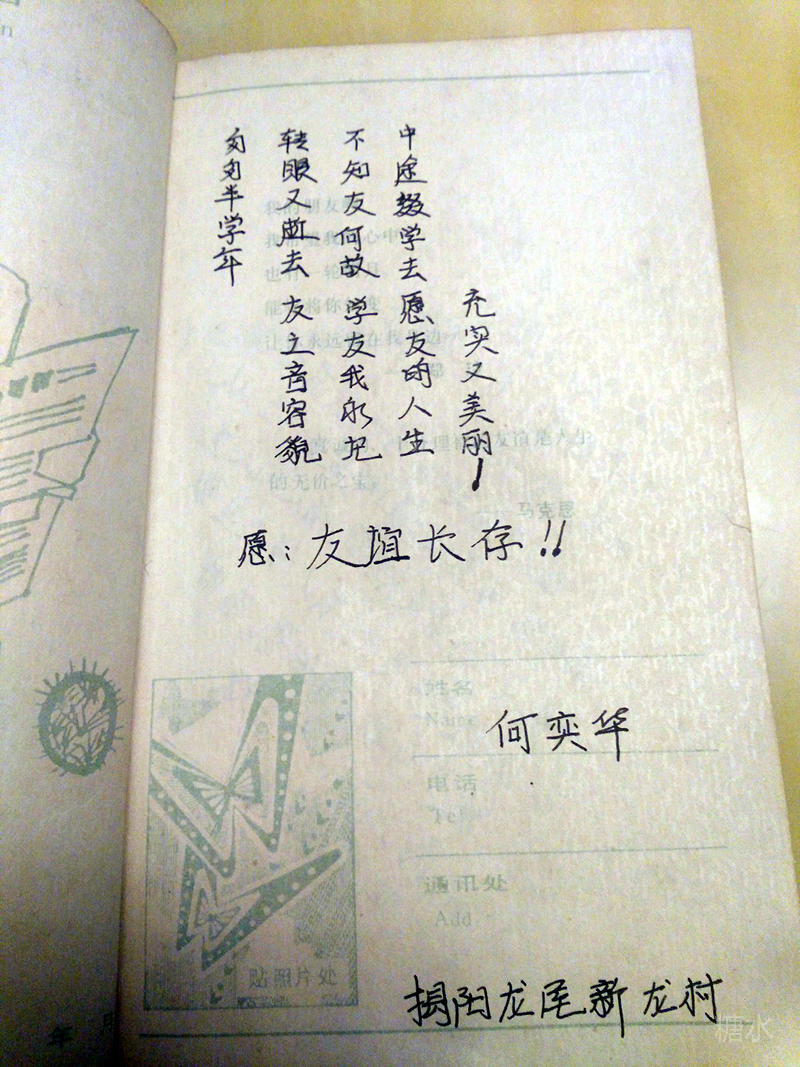 匆匆半学年
转眼又逝去 友之音容貌
不知友何故 学友我永记
中途辍学去 愿友的人生
充实又美丽!
的无价之宝
马克思
愿:友谊长存!!
姓名
Name
何奕华
电话
Tel
通讯处
Add
贴照片处
揭阳龙尾新龙村
年 月
糖水